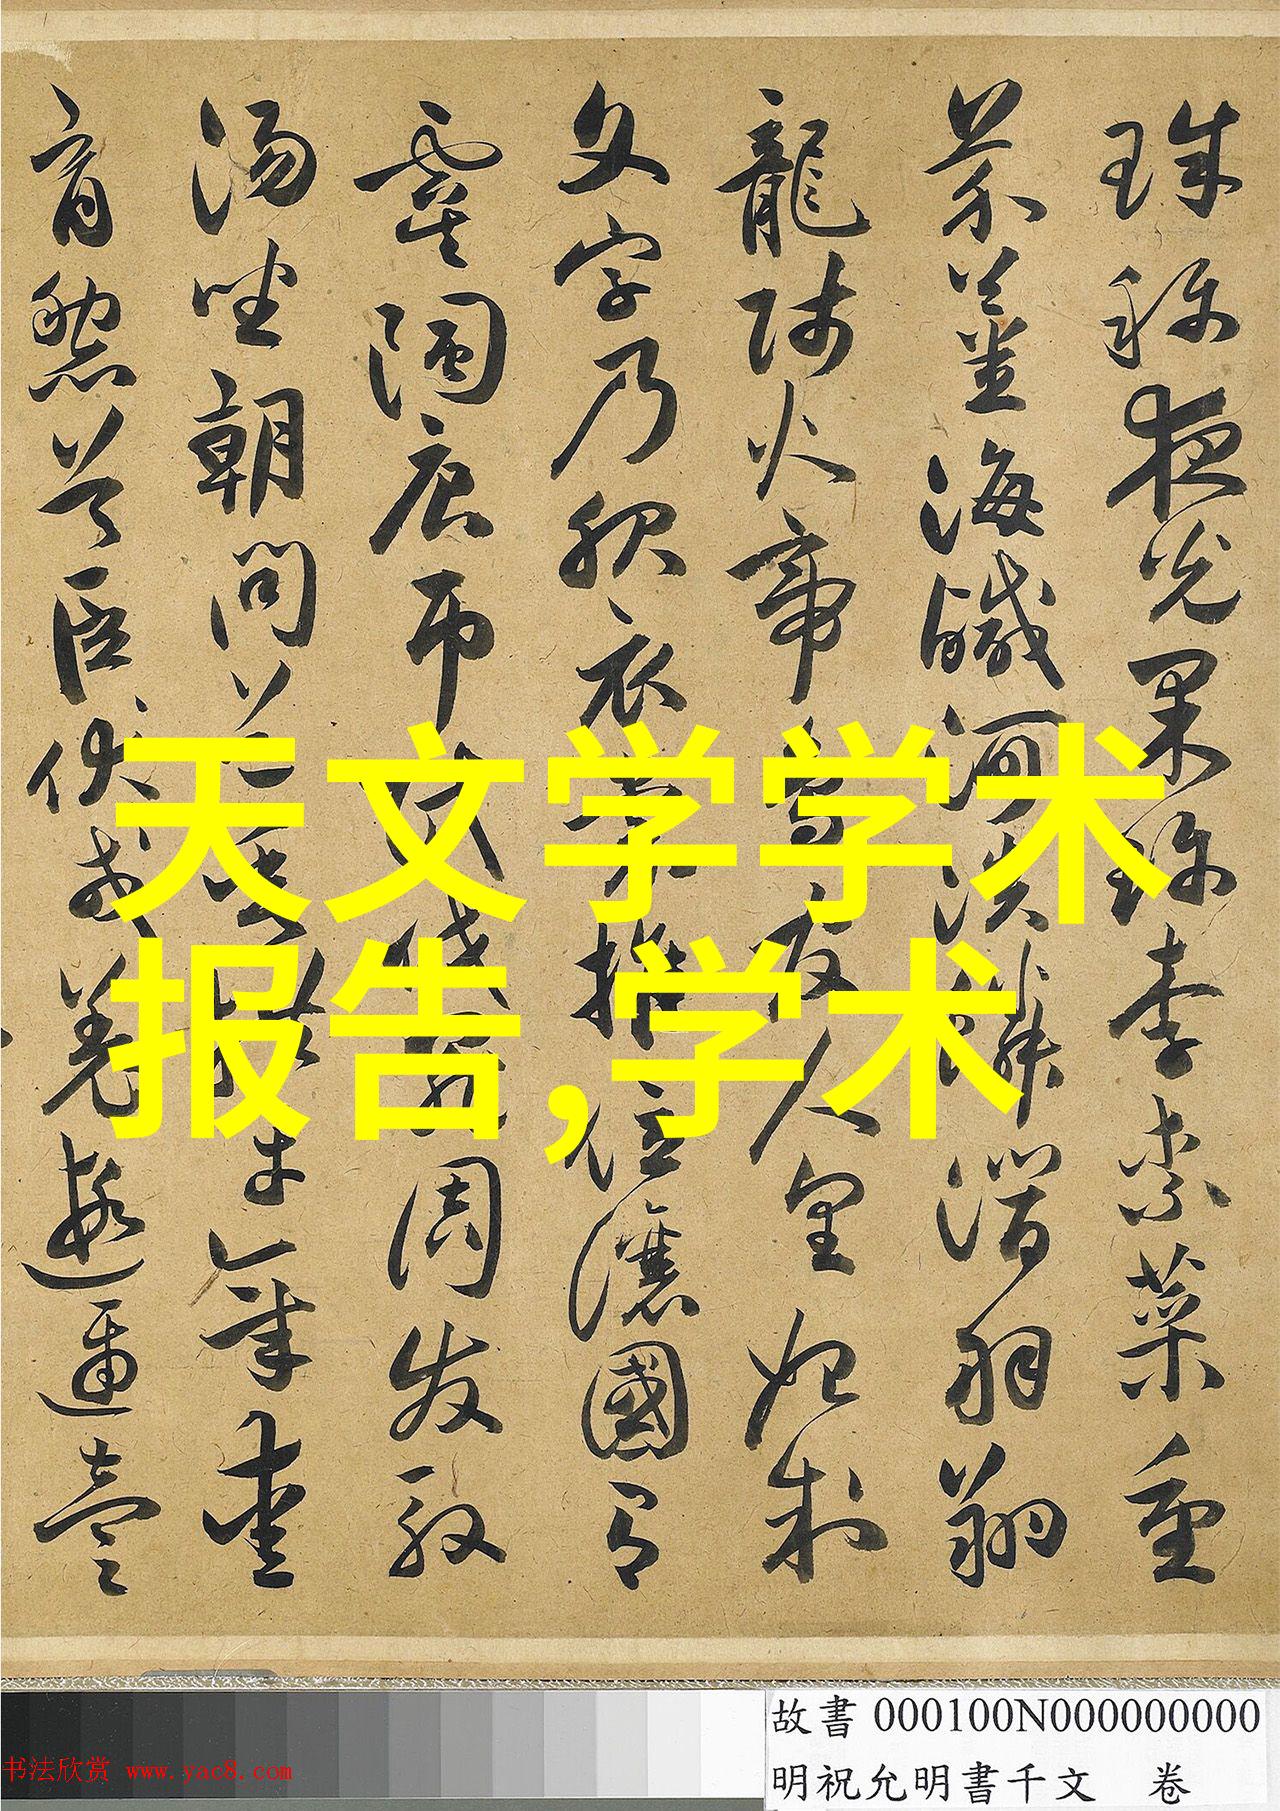 珠稱夜光果珍李柰菜重
芥薑海鹹河淡鱗潛羽翔
龍師火帝鳥官人皇始制
文字乃服衣裳推位讓國有
虞陶唐弔民伐罪周發殷
湯坐朝問道垂拱平章愛
育黎首臣伏戎羌遐邇壹
天文学学术
报告,学术
故書 000100N000000000
明祝允明書千文 卷
书法欣赏 www.yac8.com